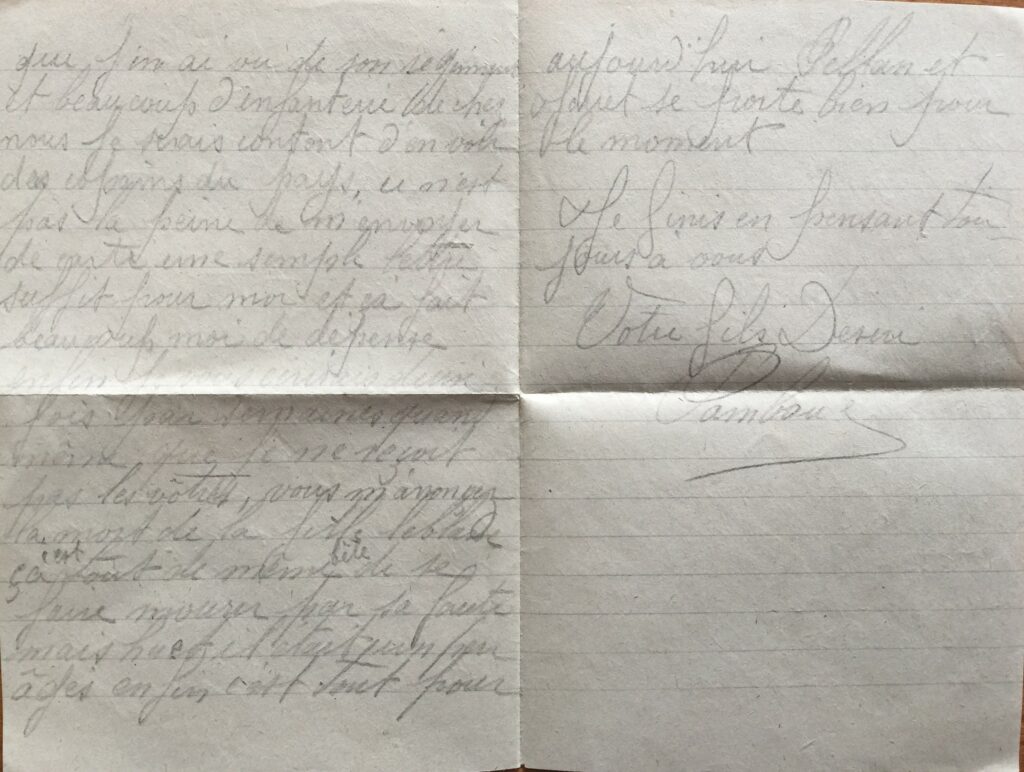 que j'en ai vu de son régiment
et beaucoup d'infanterie de chez
nous je serais content d'en voir
des copains du pays, ce n'est
pas la peine de m'envoyer
de carte une semple lettre
suffit pour moi et ça fait
beaucoup moi de dépense
enfin je vous
fois par semaines quand
même que je ne reçoit
pas les vôtres, vous m'anoncer
la mort de la fille
ça c'est tout de même bête de se
faire mourir par sa faute
mais il était un peu
âgés enfin c'est tout pour
aujourd'hui Pellan et
se porte bien pour
le moment
Je finis en pensant tou-
jours à vous
Votre fils Desiré